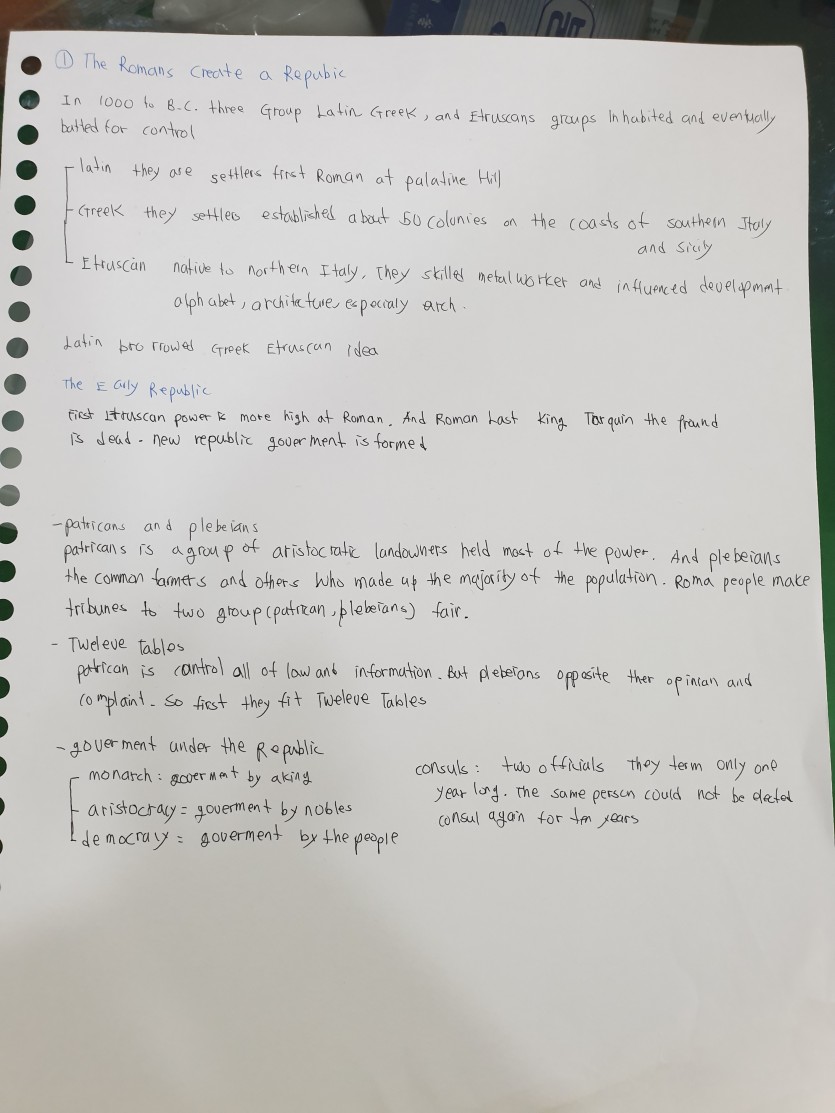 ① The Romans Create a Repubic
In 1000 to B.C. three Group Latin Greek, and Etruscans groups Inhabited and eventually
batted for control
latin they are settlers first Roman at palatine Hill
Greek they settles established about 50 colonies on the coasts of southern Italy
and Sicily
Etruscan native to northern Italy, They skilled metal worker and influenced development
alphabet, architecture, especialy arch.
Latin brorrowed Greek Etruscan idea
The Early Republic
First Etruscan power is more high at Roman. And Roman Last King Tarquin the pround
is dead. new republic goverment is formed
- patricans and plebeians
patricans is a group of aristocratic landowners held most of the power. And plebeians
the common farmers and others who made up the majority of the population. Roma people make
tribunes to two group (patrican, plebeians) fair.
- Tweleve tables
patrican is control all of law and information. But plebeians opposite ther opinian and
complaint. So first they fit Tweleve Tables
- goverment under the Republic
monarch : goverment by a king
aristocracy = goverment by nobles
democracy = goverment by the people
consuls : two officials They term only one
year long. The same person could not be elected
consul again for ten years